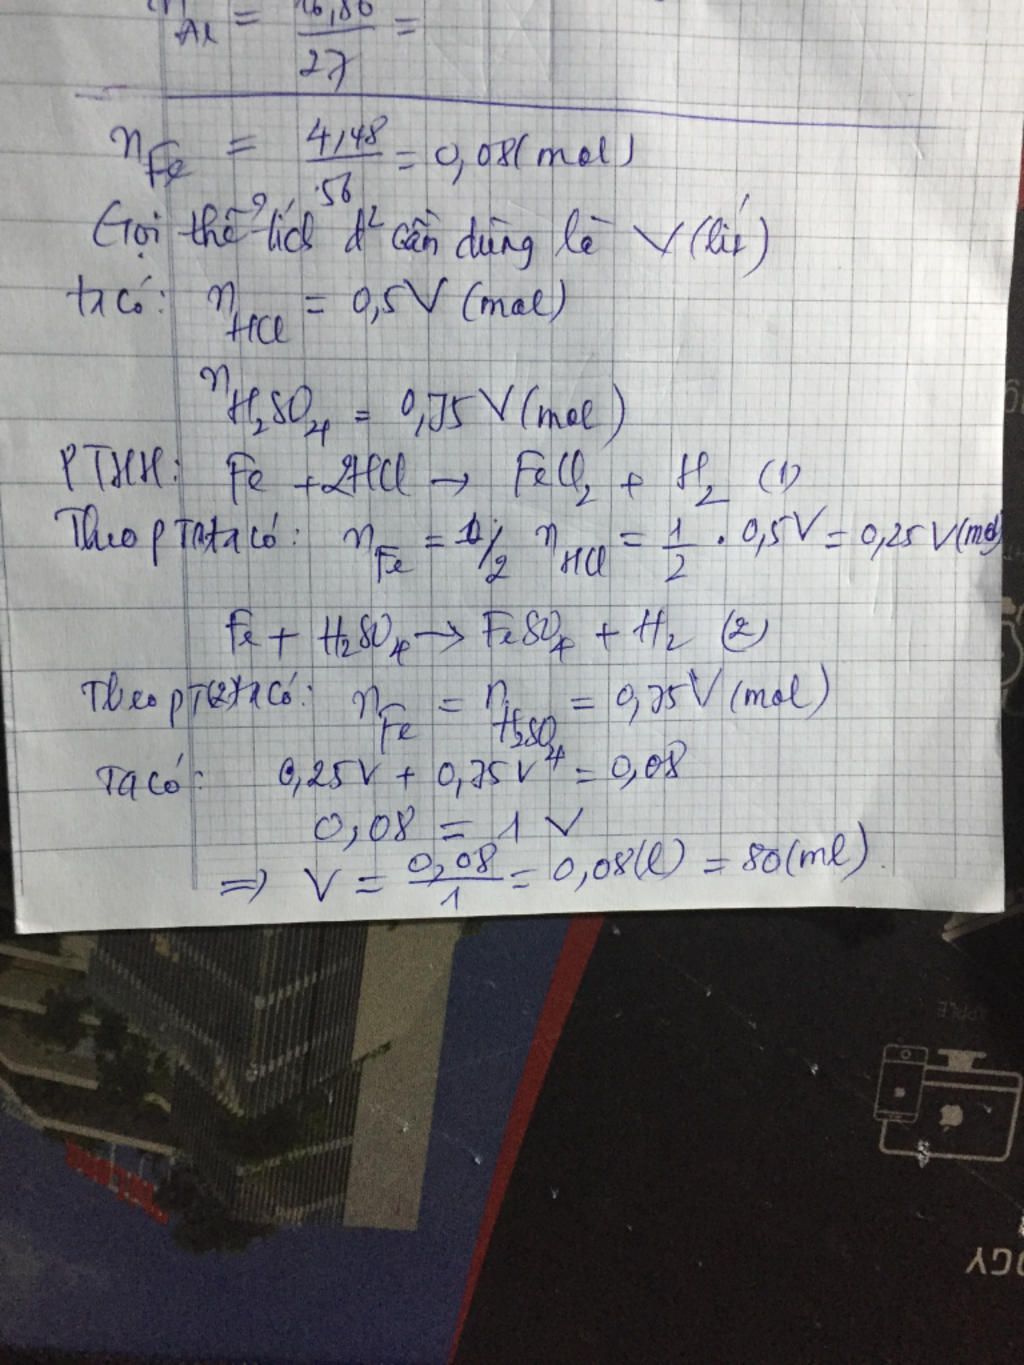 n Al = 16,86 / 27 =
n Fe = 4,48 / 56 = 0,08 (mol)
Gọi thể tích d² cần dùng là V (lít)
ta có: n HCl = 0,5 V (mol)
n H₂SO₄ = 0,75 V (mol)
PTHH: Fe + 2HCl → FeCl₂ + H₂ (1)
Theo pt ta có: n Fe = 1/2 n HCl = 1/2 . 0,5V = 0,25 V (mol)
Fe + H₂SO₄ → FeSO₄ + H₂ (2)
Theo pt (2) ta có: n Fe = n H₂SO₄ = 0,75 V (mol)
Ta có: 0,25V + 0,75V = 0,08
0,08 = 1 V
=> V = 0,08 / 1 = 0,08 (l) = 80 (ml).
APPLE
OGY